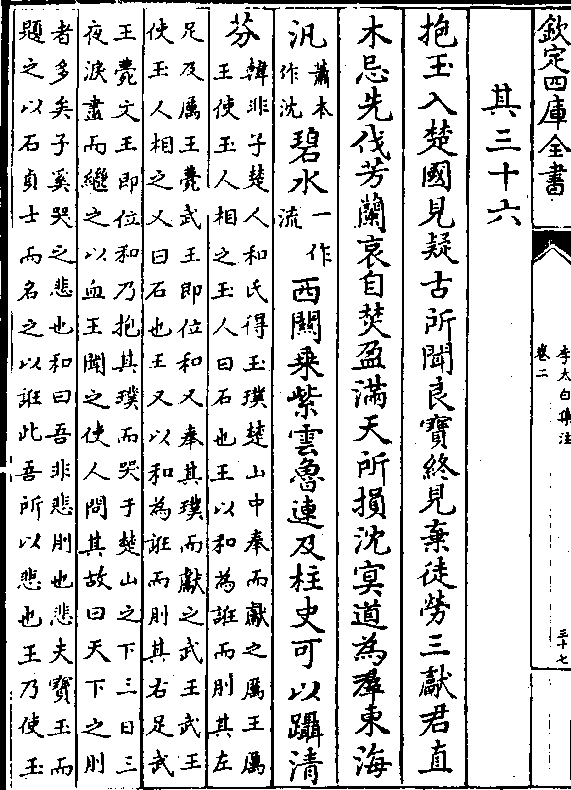 欽定四庫全書
李太白集注
卷二
三十七
其三十六
抱玉入楚國見疑古所聞良寶終見棄徒勞三獻君直
木忌先伐芳蘭哀自焚盈滿天所損沈冥道為羣東海
汎蕭本作沈碧水一作流西闗乗紫雲魯連及柱史可以躡清
芬韓非子楚人和氏得玉璞楚山中奉而獻之厲王厲
王使玉人相之玉人曰石也王以和為誑而刖其左
足及厲王薨武王即位和又奉其璞而獻之武王武王
使玉人相之又曰石也王又以和為誑而刖其右足武
王薨文王即位和乃抱其璞而哭于楚山之下三日三
夜淚盡而繼之以血王聞之使人問其故曰天下之刖
者多矣子奚哭之悲也和曰吾非悲刖也悲夫寶玉而
題之以石貞士而名之以誑此吾所以悲也王乃使玉